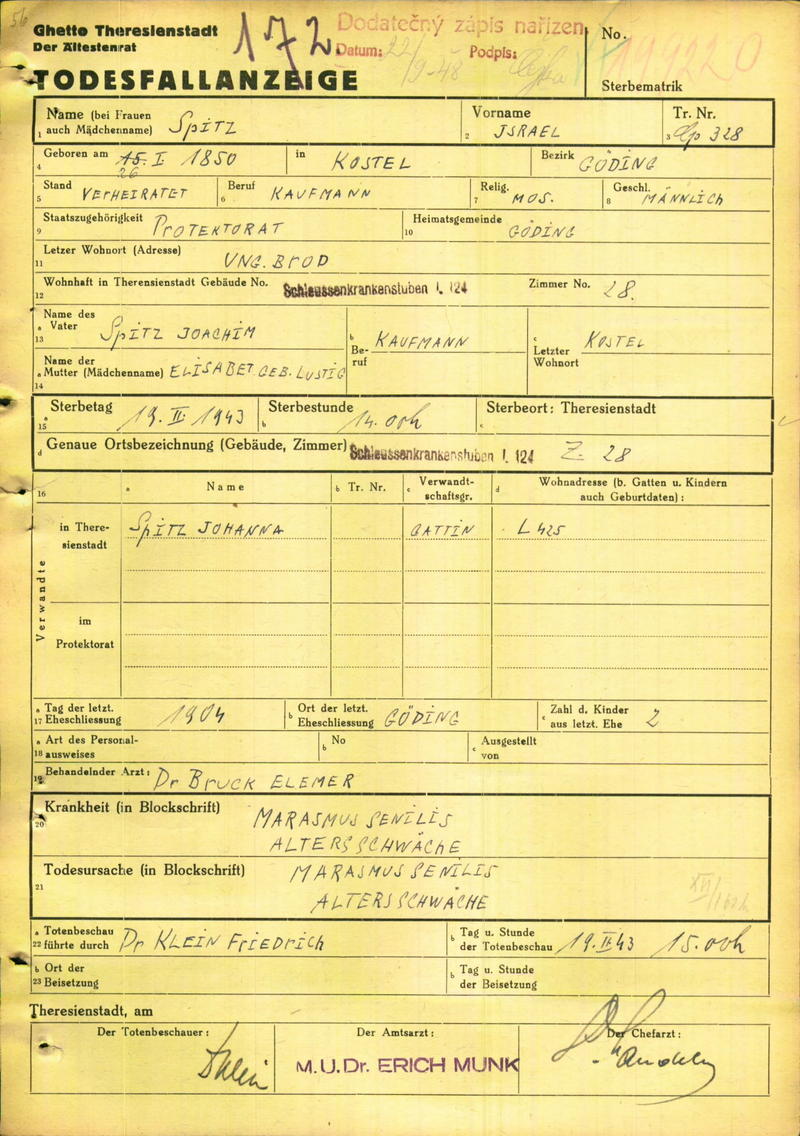 56
Ghetto Theresienstadt
Der Ältestenrat
172
Dodatečný zápis nařízen
Datum: 22/9-48 Podpis:
No.
TODESFALLANZEIGE
Sterbematrik
Name (bei Frauen auch Mädchenname) SPITZ
1
Vorname ISRAEL
2
Tr. Nr. 328
3
Geboren am 15. I 1850
26
4
in KOSTEL
Bezirk GÖDING
Stand VERHEIRATET
5
Beruf KAUFMANN
6
Relig. MOS.
7
Geschl. MÄNNLICH
8
Staatszugehörigkeit PROTEKTORAT
9
Heimatsgemeinde GÖDING
10
Letzer Wohnort (Adresse) UNG. BROD
11
Wohnhaft in Therensienstadt Gebäude No. Schleussenkrankenstuben L 124
12
Zimmer No. 28.
Name des
a Vater SPITZ JOACHIM
13
b Beruf KAUFMANN
c Letzter Wohnort KOSTEL
Name der
a Mutter (Mädchenname) ELISABET GEB. LUSTIG
14
a Sterbetag 19. II. 1943
15
b Sterbestunde 14.00h
c Sterbeort: Theresienstadt
d Genaue Ortsbezeichnung (Gebäude, Zimmer) Schleussenkrankenstuben L 124 Z. 28
16
a Name
b Tr. Nr.
c Verwandtschaftsgr.
d Wohnadresse (b. Gatten u. Kindern auch Geburtdaten):
Verwandte
in Theresienstadt
SPITZ JOHANNA GATTIN L 425
im Protektorat
a Tag der letzt.
17 Eheschliessung 1904
b Ort der letzt. Eheschliessung GÖDING
c Zahl d. Kinder aus letzt. Ehe 2
a Art des Personal-
18 ausweises
b No
c Ausgestellt von
19 Behandelnder Arzt: Dr BRUCK ELEMER
Krankheit (in Blockschrift) MARASMUS SENILIS
20
ALTERSSCHWÄCHE
Todesursache (in Blockschrift) MARASMUS SENILIS
21
ALTERSSCHWÄCHE
a Totenbeschau
22 führte durch Dr KLEIN FRIEDRICH
b Tag u. Stunde der Totenbeschau 19. II 43 15.00h
b Ort der
23 Beisetzung
b Tag u. Stunde der Beisetzung
Theresienstadt, am
Der Totenbeschauer:
Klein
Der Amtsarzt:
M.U.Dr. ERICH MUNK
Der Chefarzt: